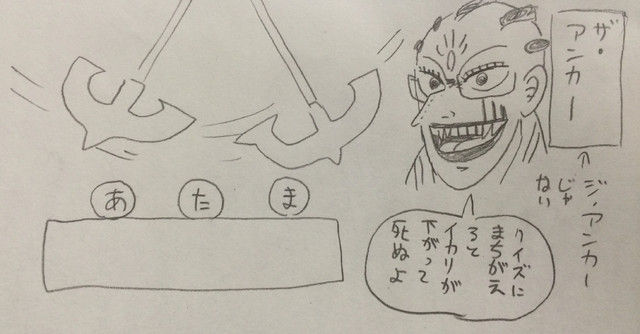 ザ・
アンカー
ジ・アンカー
じゃ
ない
あ た ま
クイズに
まちがえ
ると
イカリが
下がって
死ぬよ